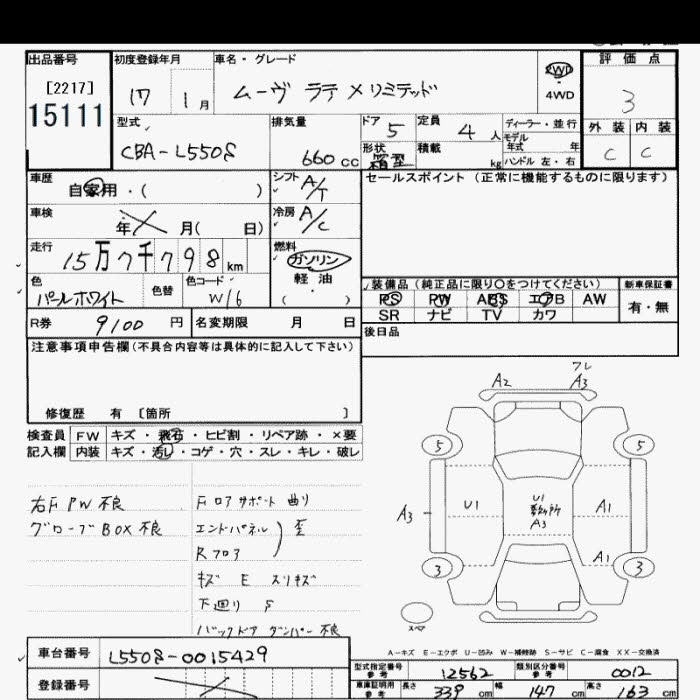 出品番号 初度登録年月 車名・グレード 2WD 評価点
[2217] 17 1月 ムーヴ ラテ Xリミテッド 4WD 3
15111
型式 排気量 ドア 5 定員 4人 ディーラー・並行 外装 内装
CBA-L550S 660cc 形状 箱型 積載 kg モデル年式 年 C C
ハンドル 左・右
車歴 シフト A/T セールスポイント (正常に機能するものに限ります)
自家用・( )
車検 年 月( 日) 冷房 A/C
走行 15万7千798km 燃料 ガソリン
軽油
色 色替 色コード ( ) 装備品 (純正品に限り〇をつけてください) 新車保証書
パールホワイト W16 PS PW ABS エアB AW 有・無
SR ナビ TV カワ
R券 9100円 名変期限 月 日 後日品
注意事項申告欄(不具合内容等は具体的に記入して下さい)
修復歴 有 [箇所 ]
検査員 FW キズ・飛石・ヒビ割・リペア跡・×要
記入欄 内装 キズ・汚レ・コゲ・穴・スレ・キレ・破レ
右F PW 不良
グローブBOX 不良
Fロアサポート 曲り
エンドパネル
Rフロア
歪
キズ E スリキズ
下廻り S
バックドア ダンパー 不良
フレ
A2 A3
5 5
A3 U1 U1 A3 A1
A1
3 3
スペア
A-キズ E-エクボ U-凹み W-補修跡 S-サビ C-腐食 XX-交換済
車台番号 L550S-0015429
登録番号
型式指定番号 参考 12562 類別区分番号 参考 0012
車庫証明用 参考 長さ 339cm 幅 147cm 高さ 163cm